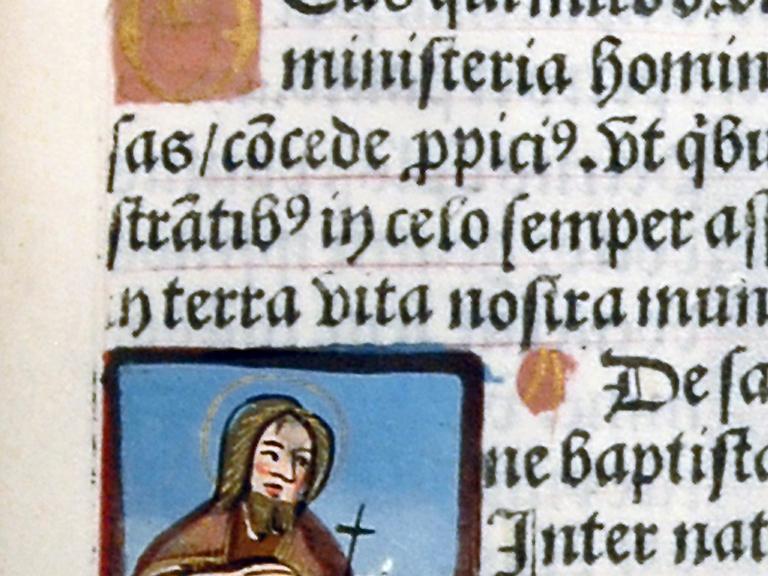 D
ministeria homin
sas/cōcede ꝓpiciꝰ. vt q̇bu
strātibꝰ in celo semper ass
in terra vita nostra mun
De sa
ne baptista
Inter nat